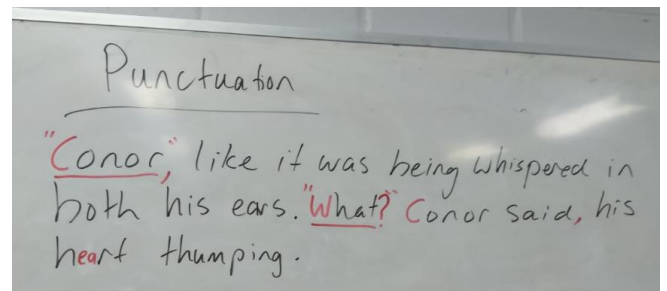 Punctuation
"Conor," like it was being whispered in
both his ears. "What?" Conor said, his
heart thumping.